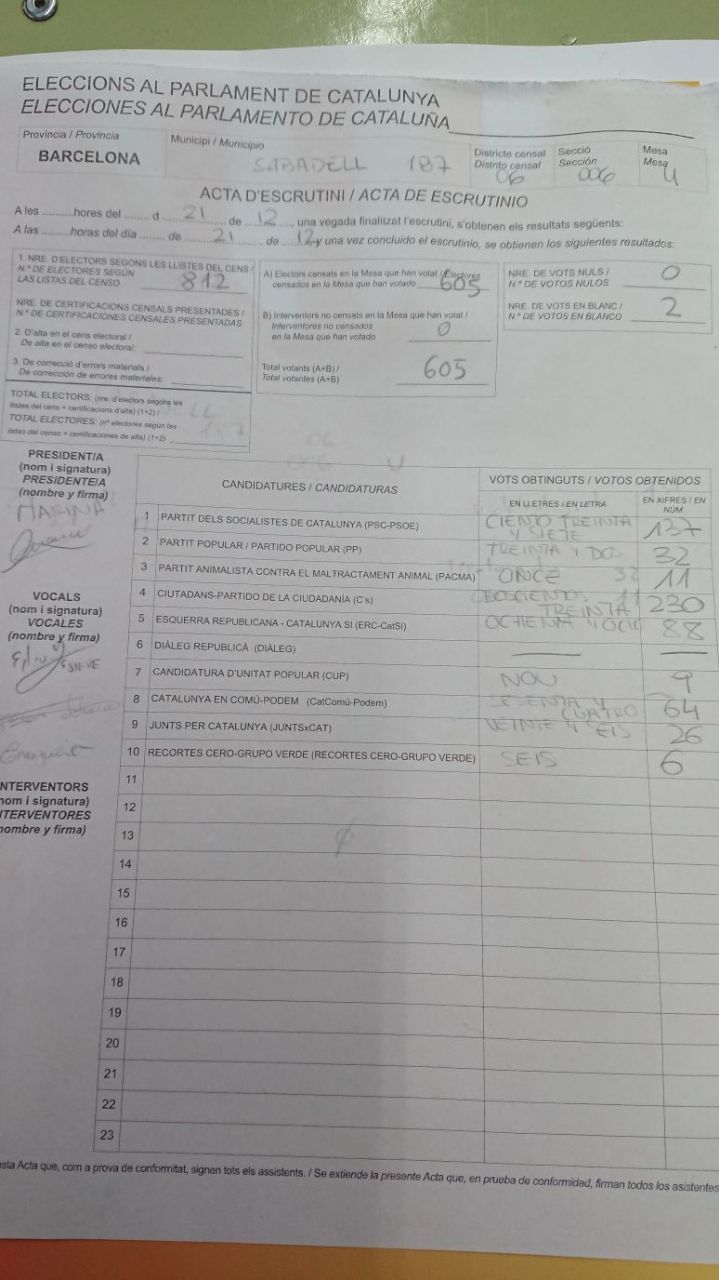 ELECCIONS AL PARLAMENT DE CATALUNYA
ELECCIONES AL PARLAMENTO DE CATALUÑA
Provincia / Provincia
BARCELONA
Municipi / Municipio
SABADELL 187
Districte censal
Distrito censal
06
Secció
Sección
006
Mesa
Mesa
U
ACTA D'ESCRUTINI / ACTA DE ESCRUTINIO
A les ..........hores del ....... d ......21...... de ....12...., una vegada finalitzat l'escrutini, s'obtenen els resultats següents:
A las ..........horas del día ....... de ......21...... de ....12, y una vez concluido el escrutinio, se obtienen los siguientes resultados:
1. NRE. D'ELECTORS SEGONS LES LLISTES DEL CENS /
N.º DE ELECTORES SEGÚN
LAS LISTAS DEL CENSO 812
NRE. DE CERTIFICACIONS CENSALS PRESENTADES /
N.º DE CERTIFICACIONES CENSALES PRESENTADAS
2. D'alta en el cens electoral /
De alta en el censo electoral:
3. De correcció d'errors materials /
De corrección de errores materiales:
TOTAL ELECTORS: (nre. d'electors segons les
llistes del cens + certificacions d'alta) (1+2) /
TOTAL ELECTORES: (nº electores según las
listas del censo + certificaciones de alta) (1+2)
A) Electors censats en la Mesa que han votat / Electores
censados en la Mesa que han votado 605
B) Interventors no censats en la Mesa que han votat /
Interventores no censados
en la Mesa que han votado 0
Total votants (A+B) /
Total votantes (A+B) 605
NRE. DE VOTS NULS /
N.º DE VOTOS NULOS 0
NRE. DE VOTS EN BLANC /
N.º DE VOTOS EN BLANCO 2
PRESIDENT/A
(nom i signatura)
PRESIDENTE/A
(nombre y firma)
MARINA
VOCALS
(nom i signatura)
VOCALES
(nombre y firma)
INTERVENTORS
nom i signatura)
INTERVENTORES
nombre y firma)
CANDIDATURES / CANDIDATURAS
VOTS OBTINGUTS / VOTOS OBTENIDOS
EN LLETRES / EN LETRA
EN XIFRES / EN NÚM.
1 PARTIT DELS SOCIALISTES DE CATALUNYA (PSC-PSOE) CIENTO TREINTA Y SIETE 137
2 PARTIT POPULAR / PARTIDO POPULAR (PP) TREINTA Y DOS 32
3 PARTIT ANIMALISTA CONTRA EL MALTRACTAMENT ANIMAL (PACMA) ONCE 11
4 CIUTADANS-PARTIDO DE LA CIUDADANÍA (C's) DOSCIENTOS TREINTA 230
5 ESQUERRA REPUBLICANA - CATALUNYA SÍ (ERC-CatSí) OCHENTA Y OCHO 88
6 DIÀLEG REPUBLICÀ (DIÀLEG) — —
7 CANDIDATURA D'UNITAT POPULAR (CUP) NOU 9
8 CATALUNYA EN COMÚ-PODEM (CatComú-Podem) SESENTA Y CUATRO 64
9 JUNTS PER CATALUNYA (JUNTSxCAT) VEINTE Y SEIS 26
10 RECORTES CERO-GRUPO VERDE (RECORTES CERO-GRUPO VERDE) SEIS 6
11
12
13
14
15
16
17
18
19
20
21
22
23
sta Acta que, com a prova de conformitat, signen tots els assistents. / Se extiende la presente Acta que, en prueba de conformidad, firman todos los asistentes